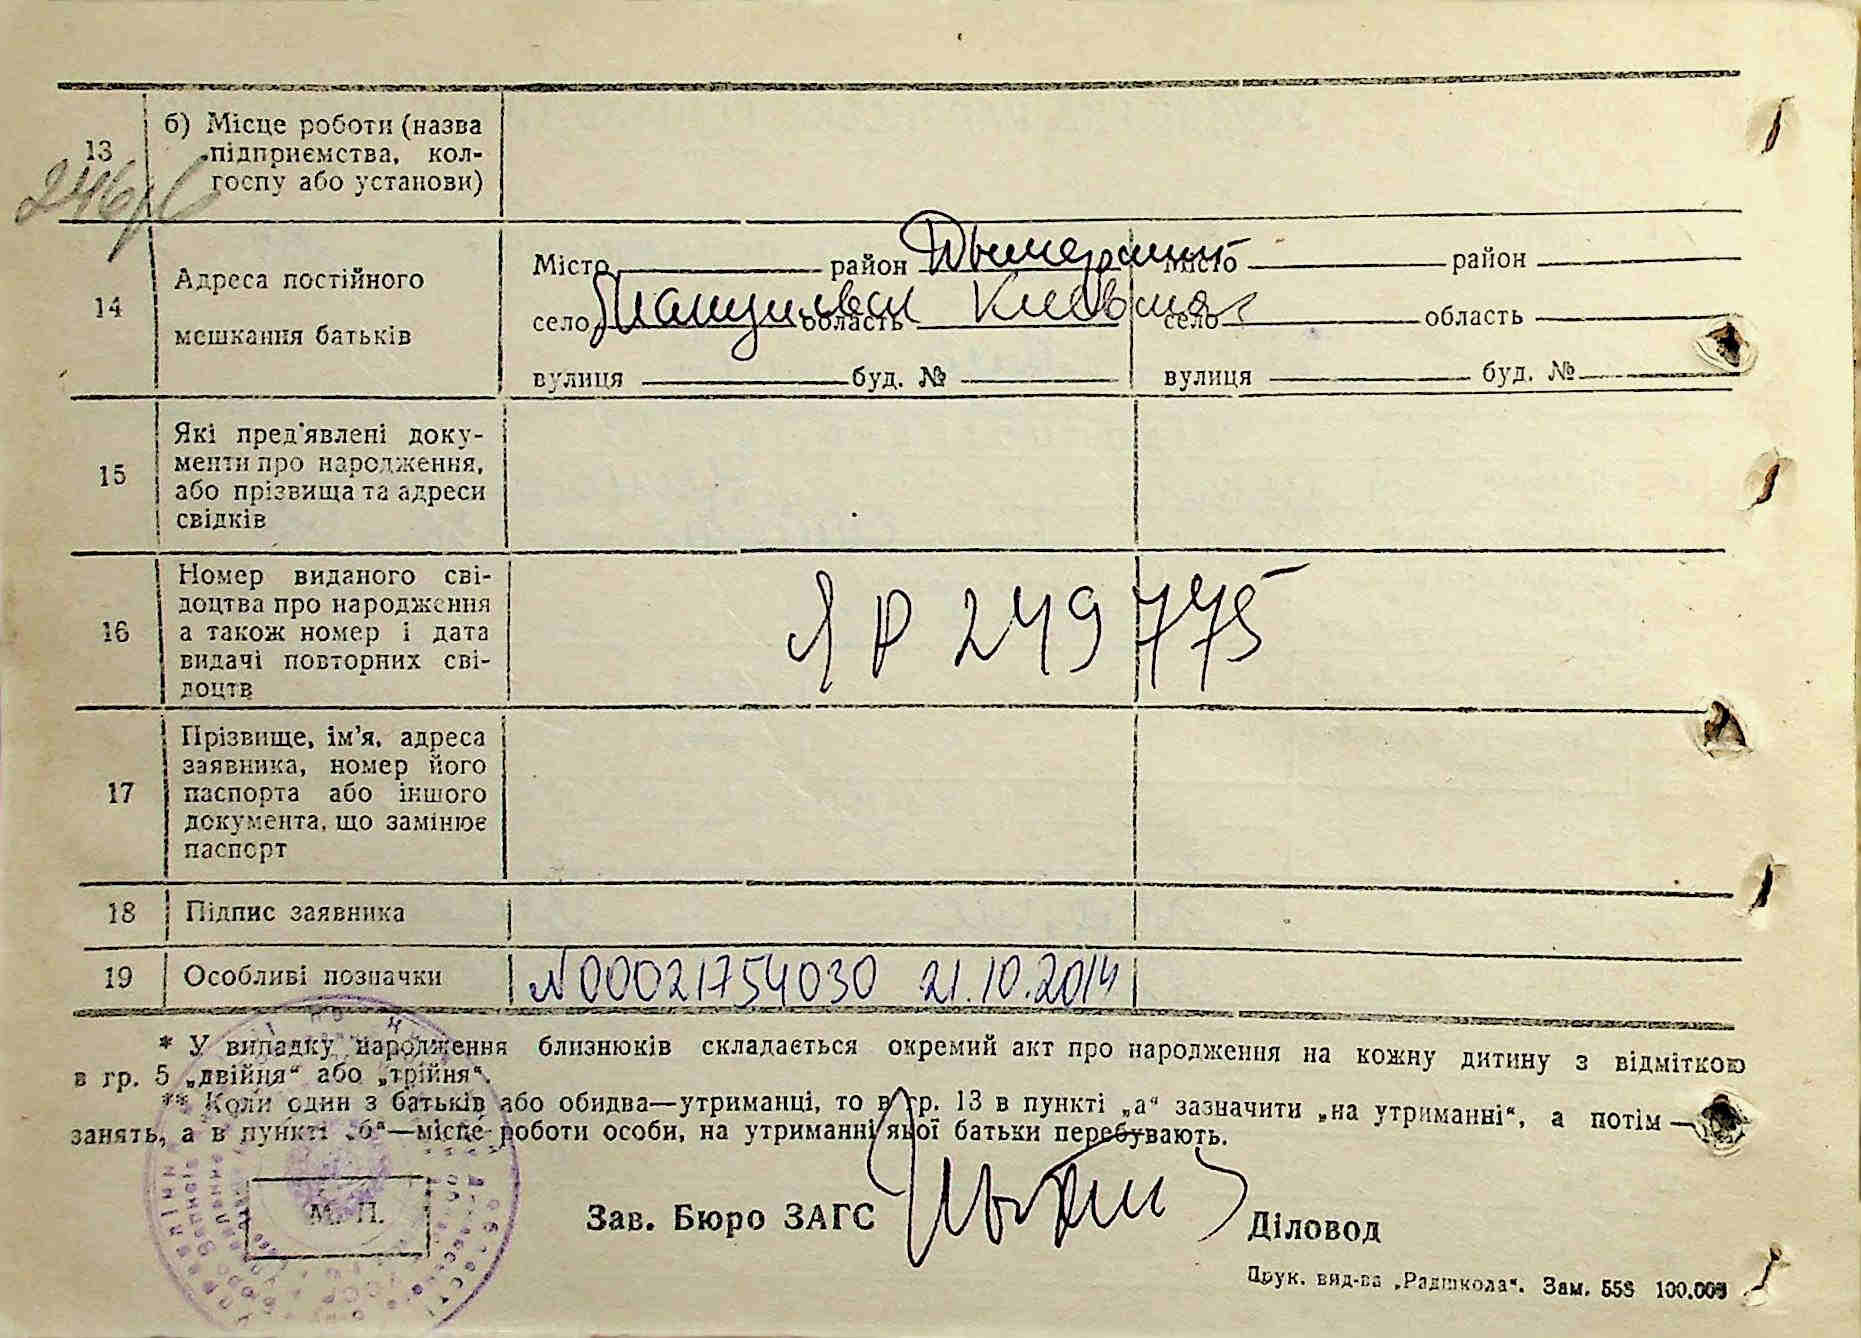 13 б) Місце роботи (назва
підприємства, кол-
госпу або установи)
246
14 Адреса постійного
мешкання батьків
Місто район Дымерский Місто район
село область Киевская село область
вулиця буд. № вулиця буд. №
15 Які пред'явлені доку-
менти про народження,
або прізвища та адреси
свідків
16 Номер виданого сві-
доцтва про народження
а також номер і дата
видачі повторних сві-
доцтв
ЯР 249775
17 Прізвище, ім'я, адреса
заявника, номер його
паспорта або іншого
документа, що замінює
паспорт
18 Підпис заявника
19 Особливі позначки N00021754030 21.10.2014
* У випадку народження близнюків складається окремий акт про народження на кожну дитину з відміткою
в гр. 5 „двійця“ або „трійня“.
** Коли один з батьків або обидва—утриманці, то в гр. 13 в пункті „а“ зазначити „на утриманні“, а потім —
занять, а в пункті „б“—місце роботи особи, на утриманні якої батьки перебувають.
М. П.
Зав. Бюро ЗАГС Діловод
Друк. вид-ва „Радшкола“. Зам. 558 100.000